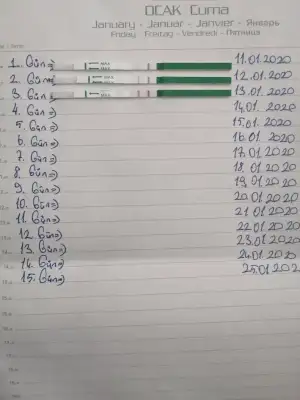 OCAK Cuma
January - Januar - Janvier - Январь
Friday - Freitag - Vendredi - Пятница
1. Gün⇒ 11.01.2020
2. Gün⇒ 12.01.2020
3. Gün⇒ 13.01.2020
4. Gün⇒ 14.01.2020
5. Gün⇒ 15.01.2020
6. Gün⇒ 16.01.2020
7. Gün⇒ 17.01.2020
8. Gün⇒ 18.01.2020
9. Gün⇒ 19.01.2020
10. Gün⇒ 20.01.2020
11. Gün⇒ 21.01.2020
12. Gün⇒ 22.01.2020
13. Gün⇒ 23.01.2020
14. Gün⇒ 24.01.2020
15. Gün⇒ 25.01.202